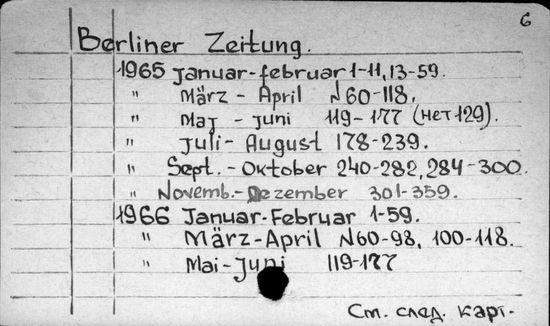 6
Berliner Zeitung.
1965 Januar-februar 1-11, 13-59.
" März - April N60-118.
" Maj - Juni 119-177 (нет 129).
" Juli - August 178-239.
" Sept. - Oktober 240-282, 284-300.
" Novemb.-Dezember 301-359.
1966 Januar-Februar 1-59.
" März-April N60-98, 100-118.
" Mai-Juni 119-177
См. след. карт.